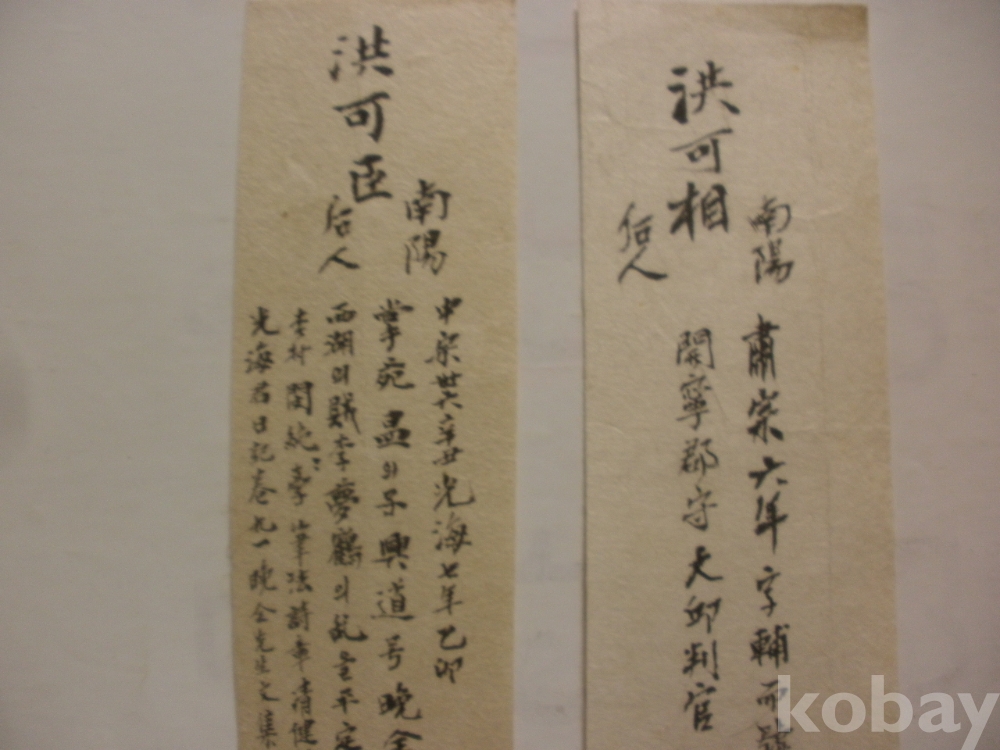 洪可相
南陽
后人
肅宗六年 字輔而號
開寧郡守大邱判官
洪可臣
南陽
后人
中宗卅六辛丑光海七年乙卯
掌宛 昷의子 興道号 晩全
西湖의賊李夢鶴의乱을平定
杏村 閔純 筆法詩章清健
光海君日記卷九一 晩全先生文集
kobay